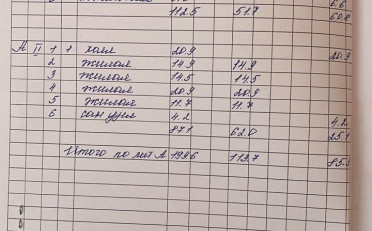 112.5 51.7 60.8
А II 1 1 холл 20.9 20.9
2 жилая 14.9 14.9
3 жилая 14.5 14.5
4 жилая 20.9 20.9
5 жилая 11.7 11.7
6 сан узел 4.2 4.2
87.1 62.0 25.1
Итого по лит А 199.6 113.7 85.9